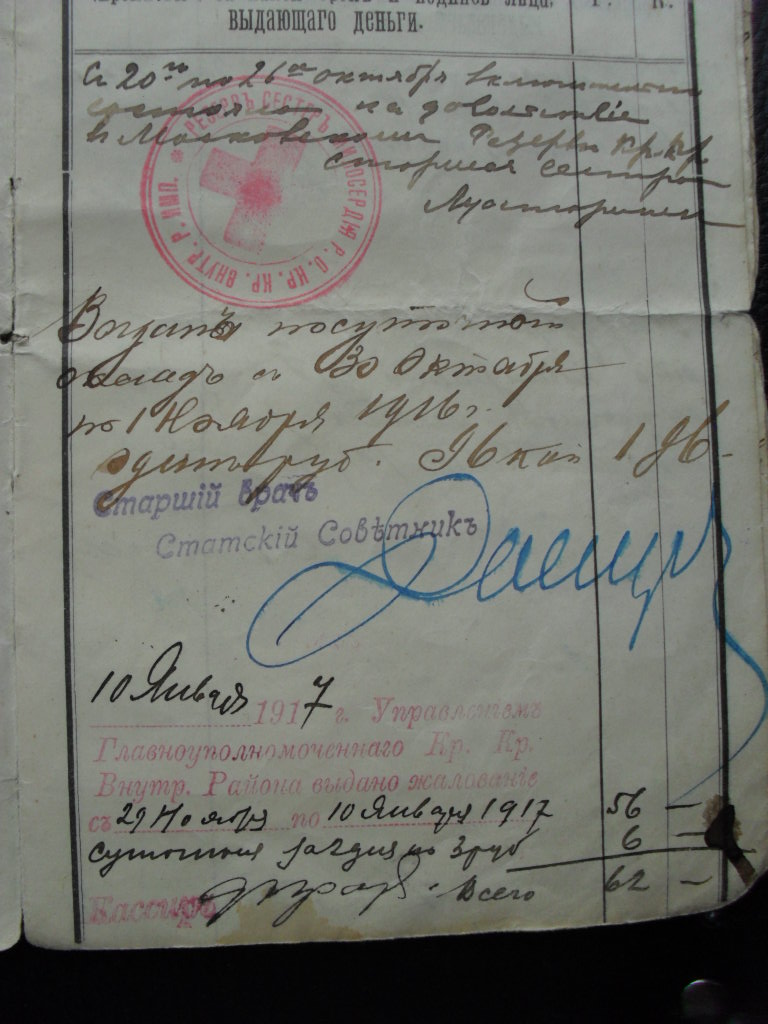 и подпись лица,
выдающаго деньги.
Р. К.
Съ 20го по 26ое октября включительно
состояла на довольствіе
в Московскомъ Резервѣ Кр. Кр.
старшая сестра
РЕЗЕРВЪ СЕСТРЪ МИЛОСЕРДІЯ Р. О. КР. КР. ВНУТР. Р. ИМП.
Выданъ посуточной
окладъ с 30 Октября
по 1 Ноября 1916 г.
один руб. 96 коп 1 96 -
Старшій врачъ
Статскій Совѣтникъ
10 Января 1917 г. Управленіемъ
Главноуполномоченнаго Кр. Кр.
Внутр. Района выдано жалованіе
съ 29 Ноября по 10 Января 1917 56 —
суточныя за 2 дня по 3 руб 6 —
Кассиръ Всего 62 —